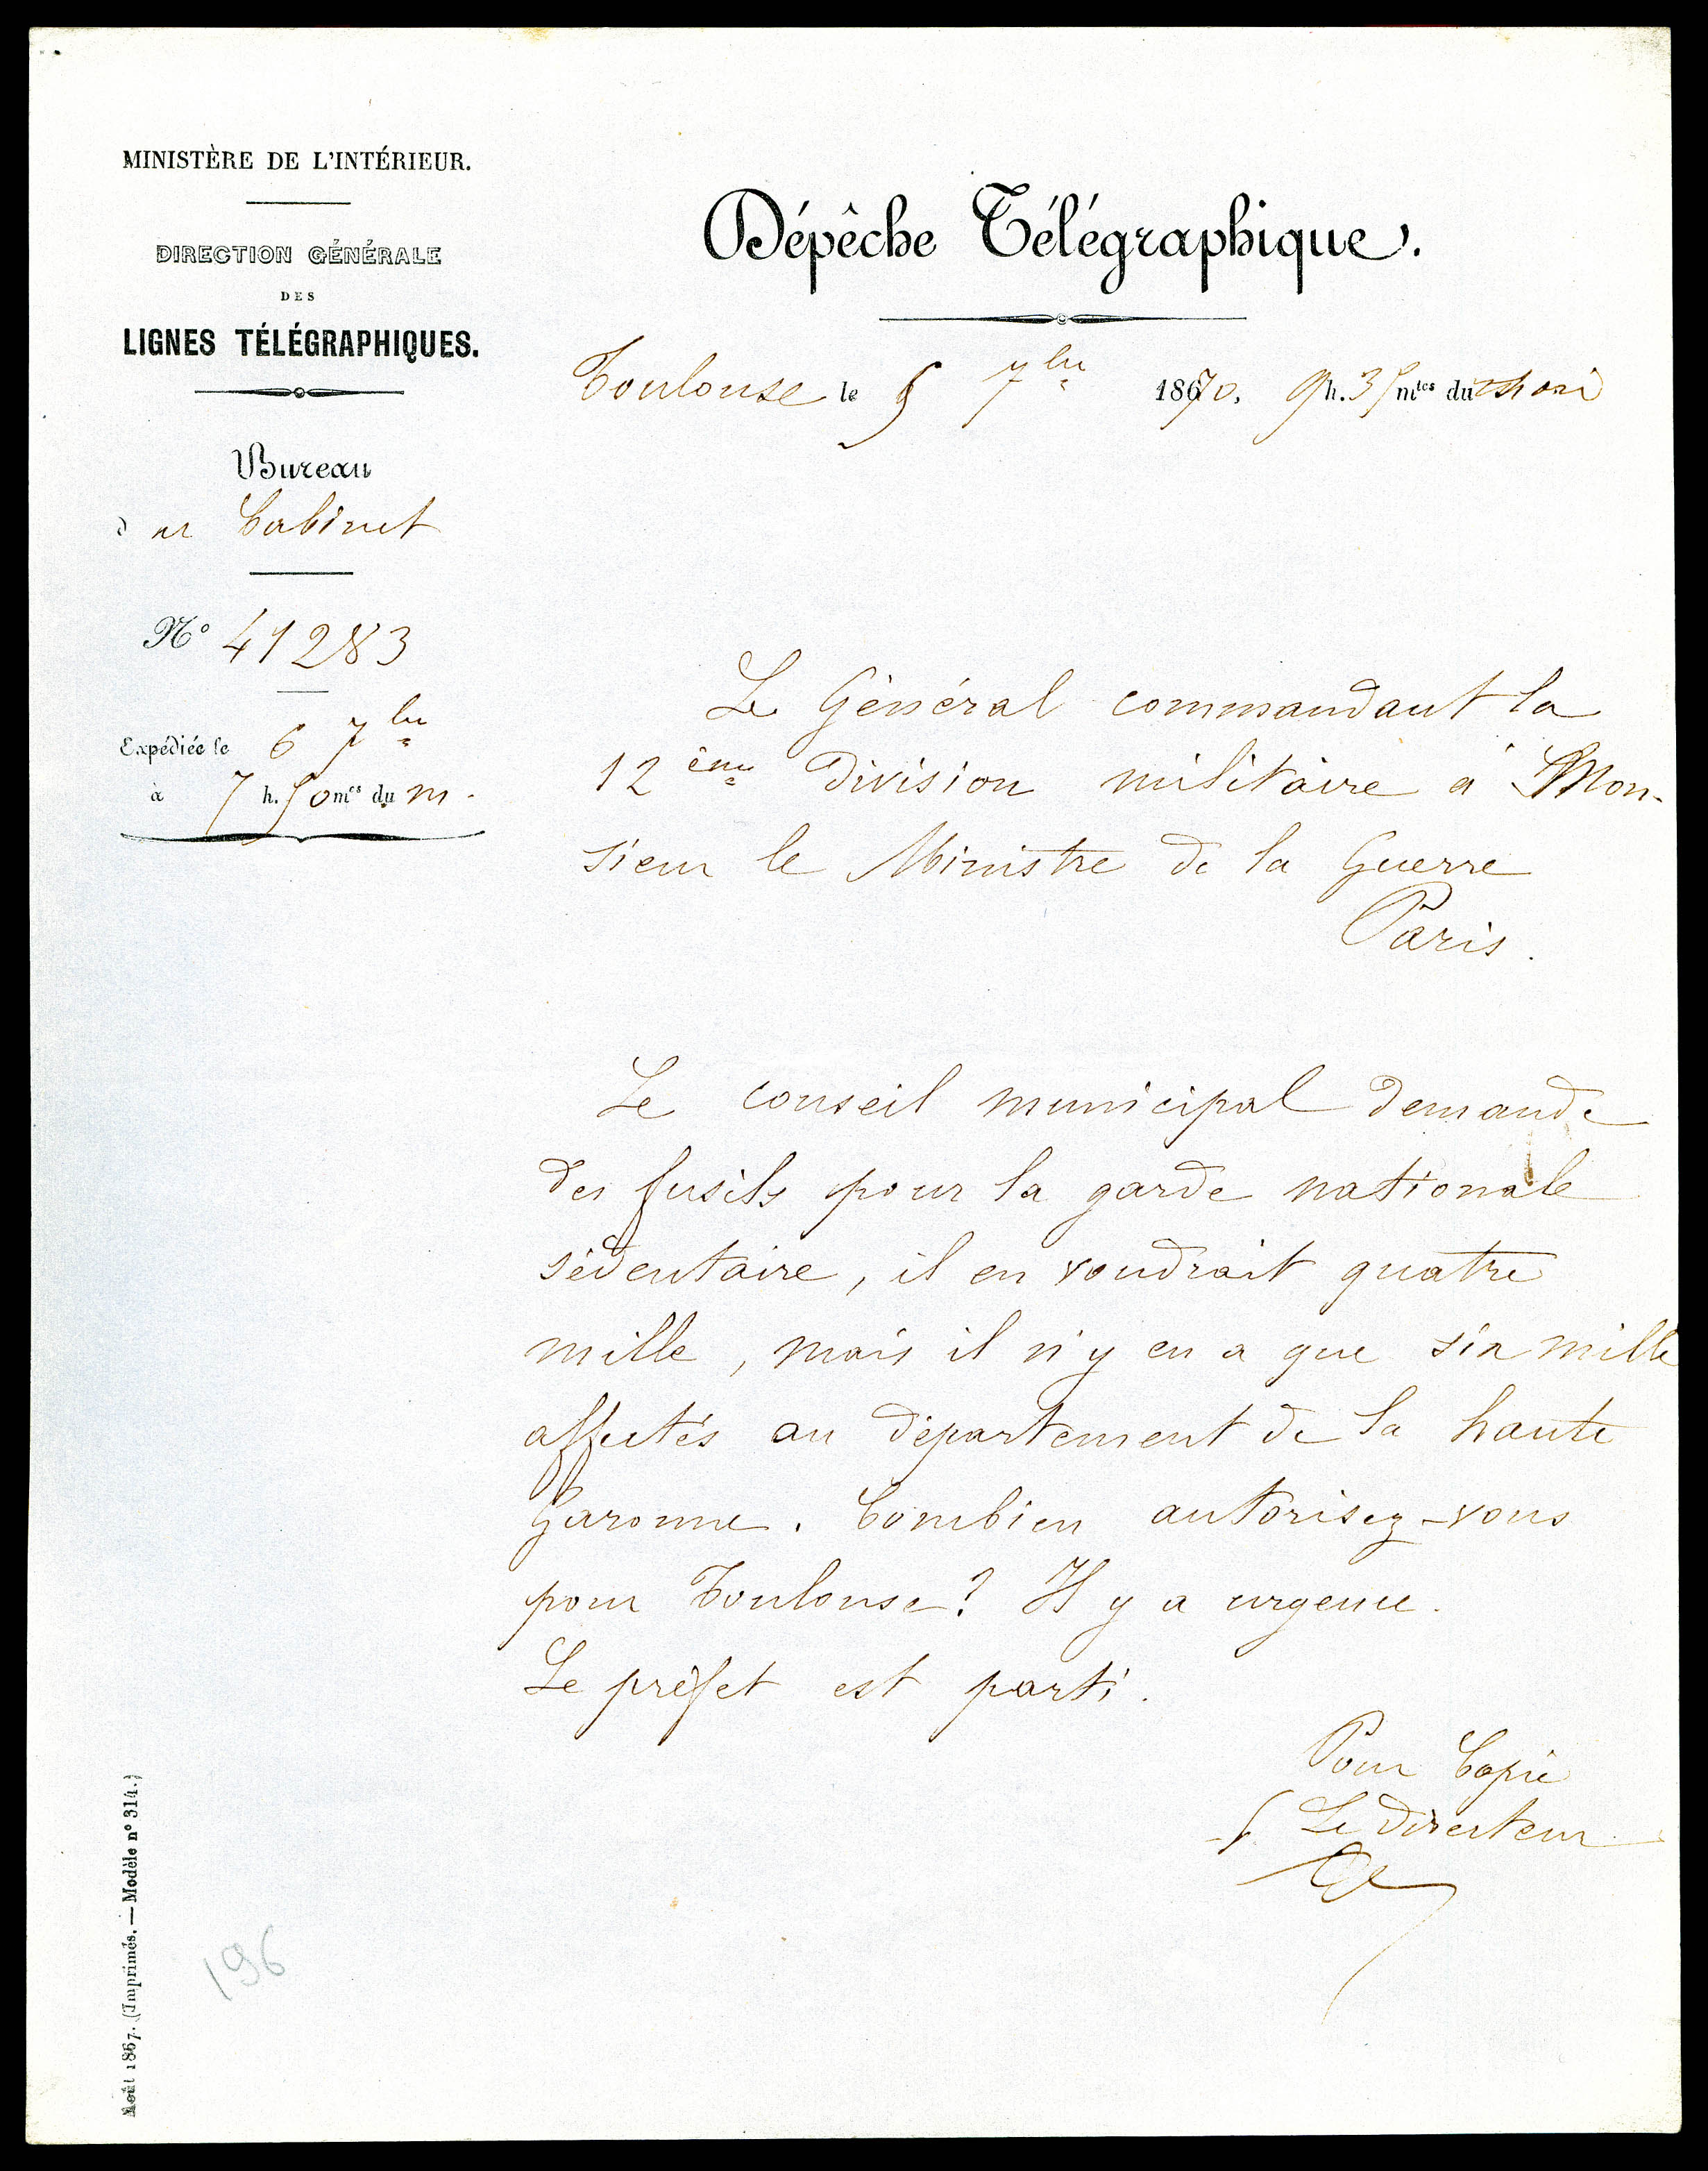 MINISTÈRE DE L'INTÉRIEUR.
DIRECTION GÉNÉRALE
DES
LIGNES TÉLÉGRAPHIQUES.
Bureau
du Cabinet
N° 41283
Expédiée le 6 7bre
à 7 h. 50 mes du m.
Dépêche Télégraphique.
Toulouse le 5 7bre 1870, 9 h. 35 mtes du
Le Général commandant la
12ème Division militaire à Mon-
sieur le Ministre de la Guerre
Paris.
Le conseil municipal demande
des fusils pour la garde nationale
sédentaire, il en voudrait quatre
mille, mais il n'y en a que six mille
affectés au département de la haute
Garonne. Combien autorisez-vous
pour Toulouse? Il y a urgence.
Le préfet est parti.
Pour Copie
Le Directeur
Août 1867. (Imprimés. — Modèle n° 314.)
196